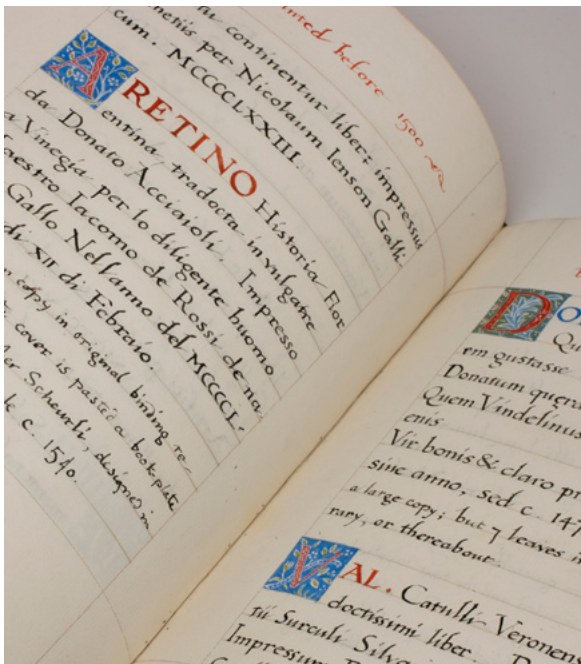 inted before 1500
continentur liber; impressus
netiis per Nicolaum Ienson Galli
cum. MCCCCLXXIII.
ARETINO Historia Flor
entina tradocta in vulgare
da Donato Acciaioli. Impresso
a Vinegia per lo diligente huomo
aestro Iacomo de Rossi de na
Gallo Nell'anno del MCCCCL-
di XII di Febraio.
n copy in original binding re-
cover is pasted a bookplate
er Scheurli, designed in
c. 1540.
DO
Qu
em gustasse
Donatum quera
Quem Vindelinus
enis
Vir bonis & claro pr
sine anno, sed c. 147
a large copy; but 7 leaves in
rary, or thereabout.
VAL. Catulli Veronens
doctissimi liber.
tii Surculi Silva
Impressum